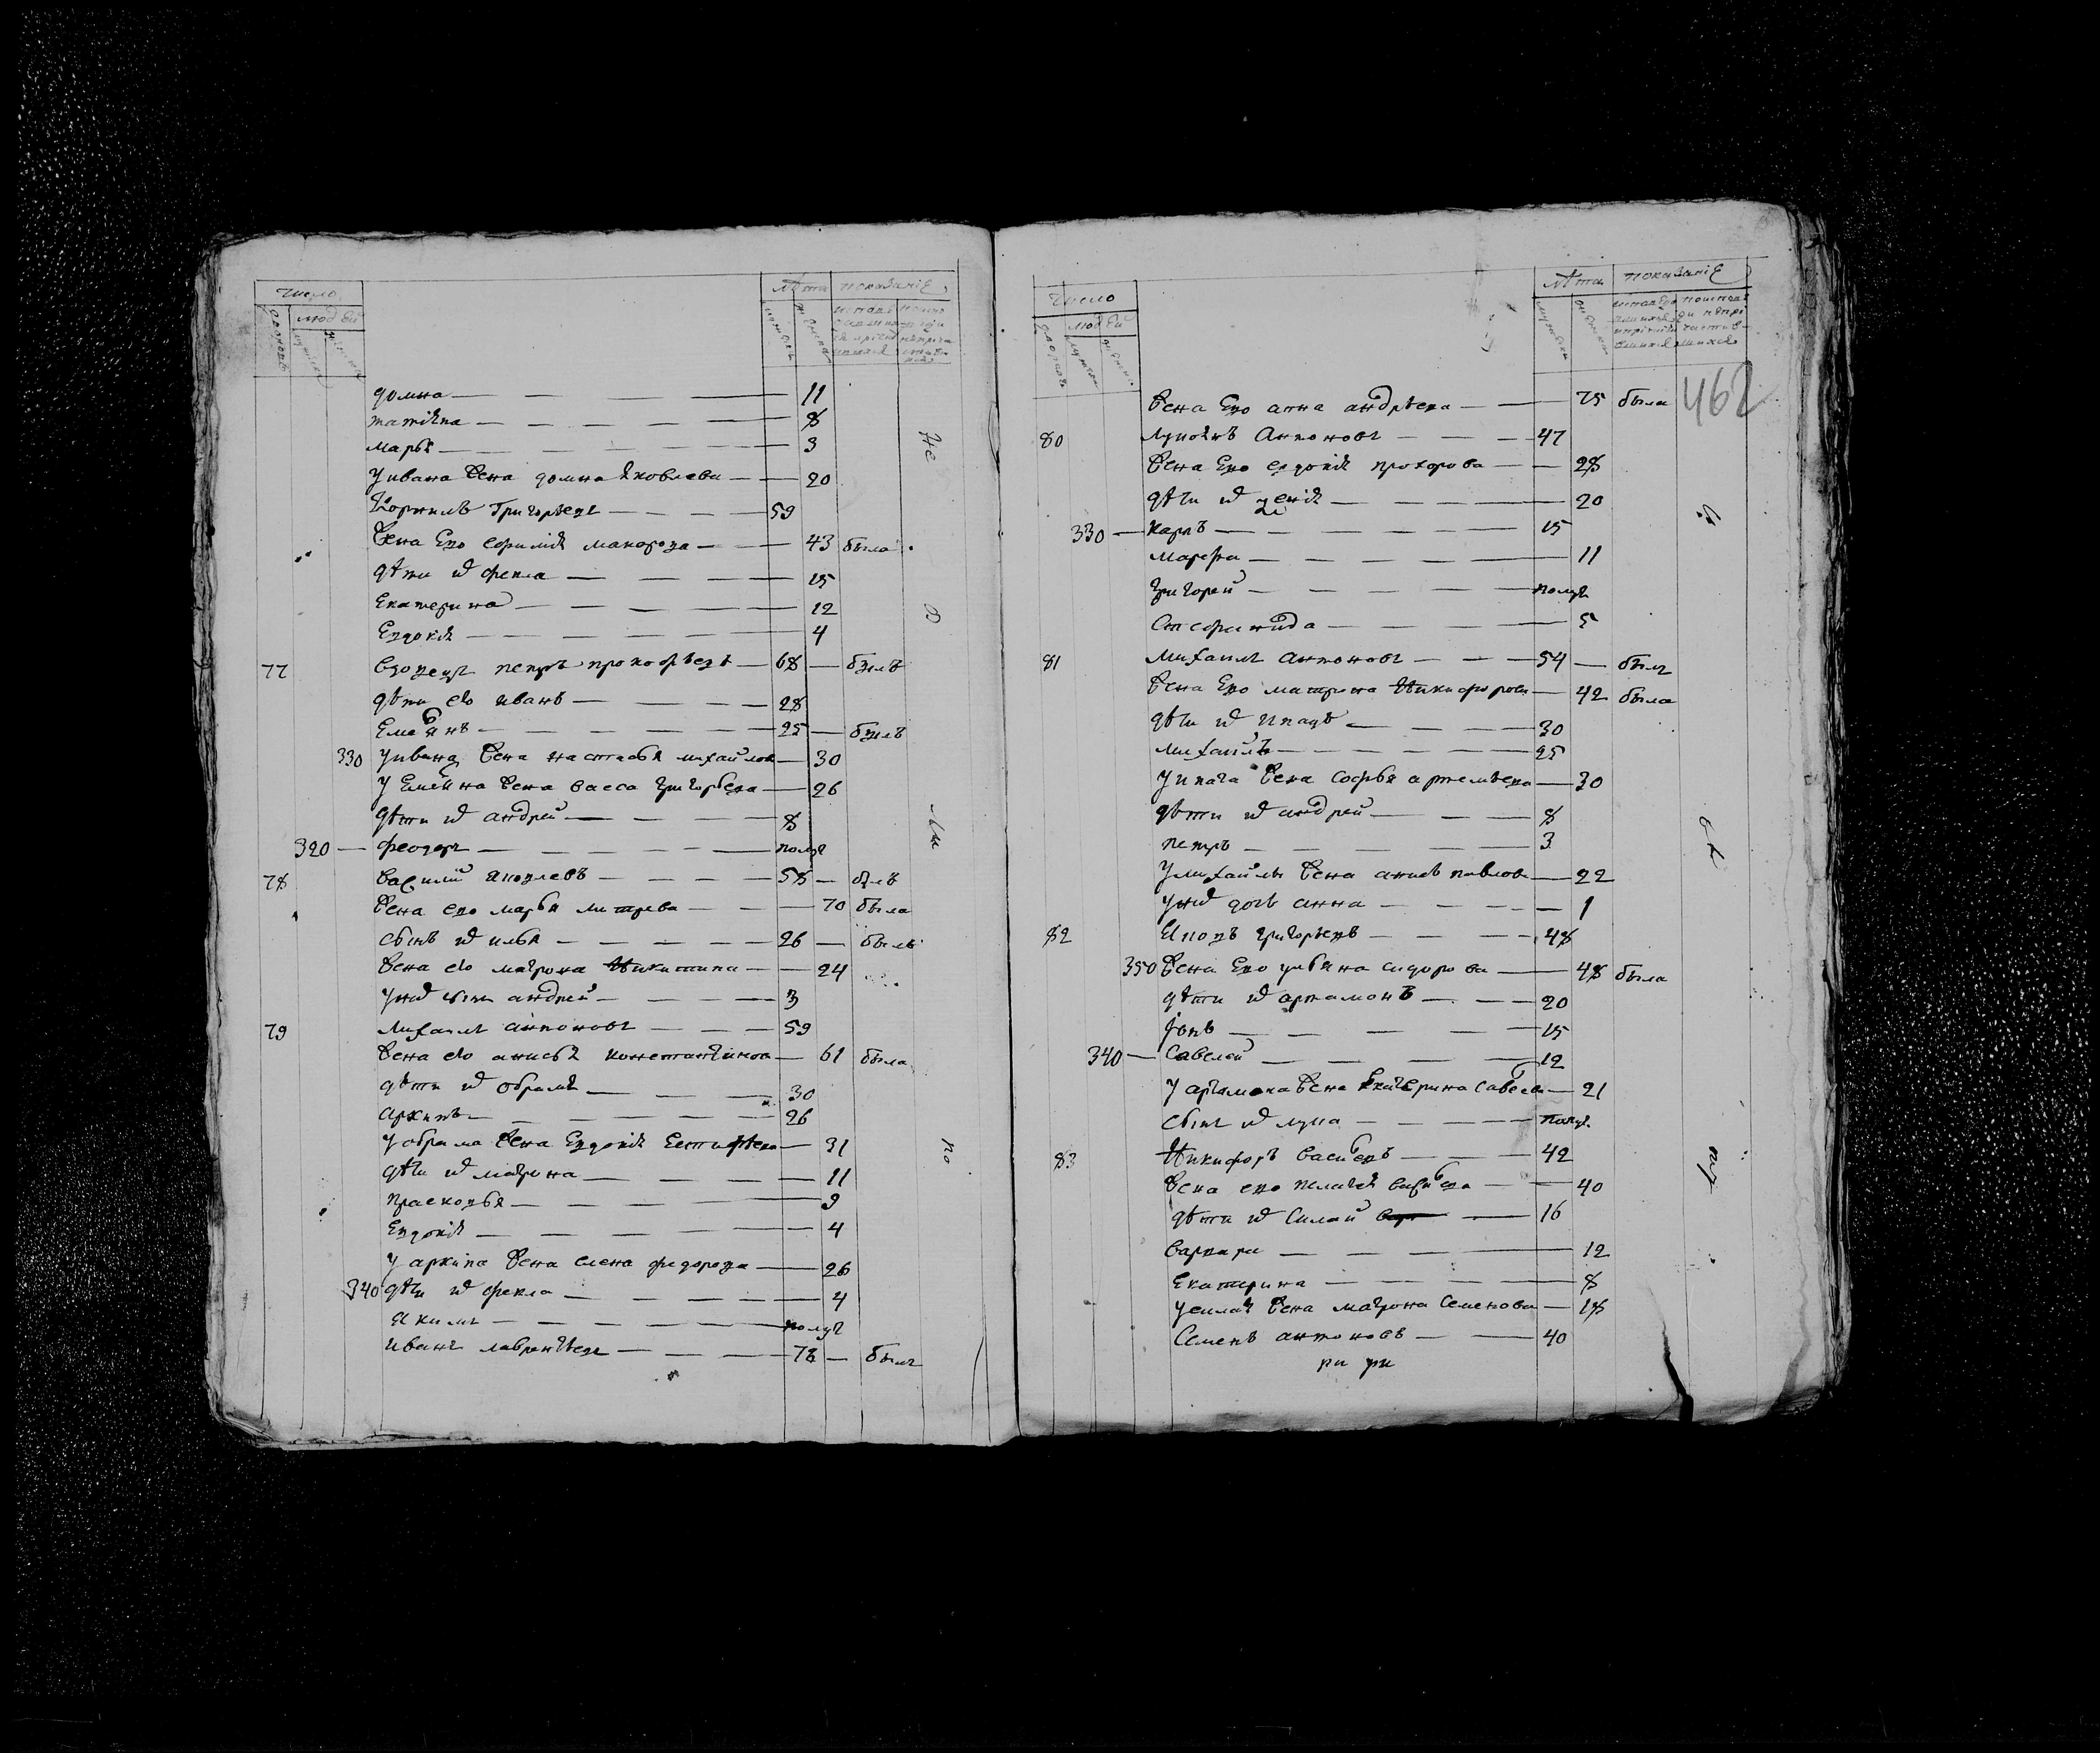 число
людей
лѣта показаніе
домна 11
татіяна 8
марья 3
у ивана жена домна яковлева 20
Корнилъ Григорьевъ 59
жена Ево ефимія макарова 43 была
дѣти их фекла 15
Екатерина 12
Евдокія 4
77 вдовецъ петръ прокофьевъ 68 былъ
дѣти ево иванъ 28
Емельянъ 25 былъ
330 у ивана жена настасья михайлова 30
у Емельяна жена васса григорьева 26
дѣти их андрей 8
320 феодоръ полуг
78 василий яковлевъ 58 былъ
жена ево марья митрева 70 была
сынъ их илья 26 былъ
жена ево матрона Никитина 24
у них сынъ андрей 3
79 михаилъ антоновъ 59
жена ево анисья константинова 61 была
дѣти их обрамъ 30
архипъ 26
у обрама жена Евдокія Естифѣева 31
дѣти их матрона 11
прасковья 9
Евдокія 4
у архипа жена елена федорова 26
340 дѣти их фекла 4
Якимъ полуг
иванъ лаврентьевъ 78 былъ
не
о
ли
по
число
людей
лѣта показаніе
462
жена Ево анна андрѣева 75 была
80 лукоянъ Антоновъ 47
жена Ево евдокія прохорова 28
дѣти их 20
330 карпъ 15
марфа 11
григорей полуг
Степанида 5
81 михаилъ антоновъ 54 былъ
жена Ево матрона Никифорова 42 была
дѣти их игнатъ 30
михайлъ 25
у игната жена софья артемьева 30
дѣти их андрей 8
петръ 3
у михайлы жена анисья павлова 22
у них дочь анна 1
82 Яковъ григорьевъ 48
350 жена Ево ульяна сидорова 48 была
дѣти их артамонъ 20
іовъ 15
340 Савелей 12
у артамона жена Екатерина савельева 21
сынъ их лука полуг
83 Никифоръ васильевъ 42
жена ево пелагея васильева 40
дѣти их Силай 16
варвара 12
Екатерина 8
у силая жена матрона Семенова 18
Семенъ антоновъ 40